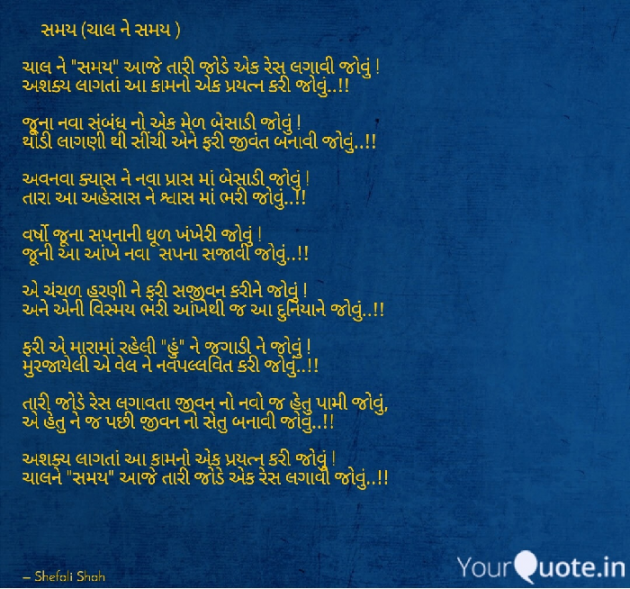 સમય (ચાલ ને સમય )
ચાલ ને "સમય" આજે તારી જોડે એક રેસ લગાવી જોવું !
અશક્ય લાગતાં આ કામનો એક પ્રયત્ન કરી જોવું..!!
જૂના નવા સંબંધ નો એક મેળ બેસાડી જોવું !
થોડી લાગણી થી સીંચી એને ફરી જીવંત બનાવી જોવું..!!
અવનવા ક્યાસ ને નવા પ્રાસ માં બેસાડી જોવું !
તારા આ અહેસાસ ને શ્વાસ માં ભરી જોવું..!!
વર્ષો જૂના સપનાની ધૂળ ખંખેરી જોવું !
જૂની આ આંખે નવા સપના સજાવી જોવું..!!
એ ચંચળ હરણી ને ફરી સજીવન કરીને જોવું !
અને એની વિસ્મય ભરી આંખેથી જ આ દુનિયાને જોવું..!!
ફરી એ મારામાં રહેલી "હું" ને જગાડી ને જોવું !
મુરજાયેલી એ વેલ ને નવપલ્લવિત કરી જોવું..!!
તારી જોડે રેસ લગાવતા જીવન નો નવો જ હેતુ પામી જોવું,
એ હેતુ ને જ પછી જીવન નો સેતુ બનાવી જોવું..!!
અશક્ય લાગતાં આ કામનો એક પ્રયત્ન કરી જોવું !
ચાલને "સમય" આજે તારી જોડે એક રેસ લગાવી જોવું..!!
– Shefali Shah
YourQuote.in